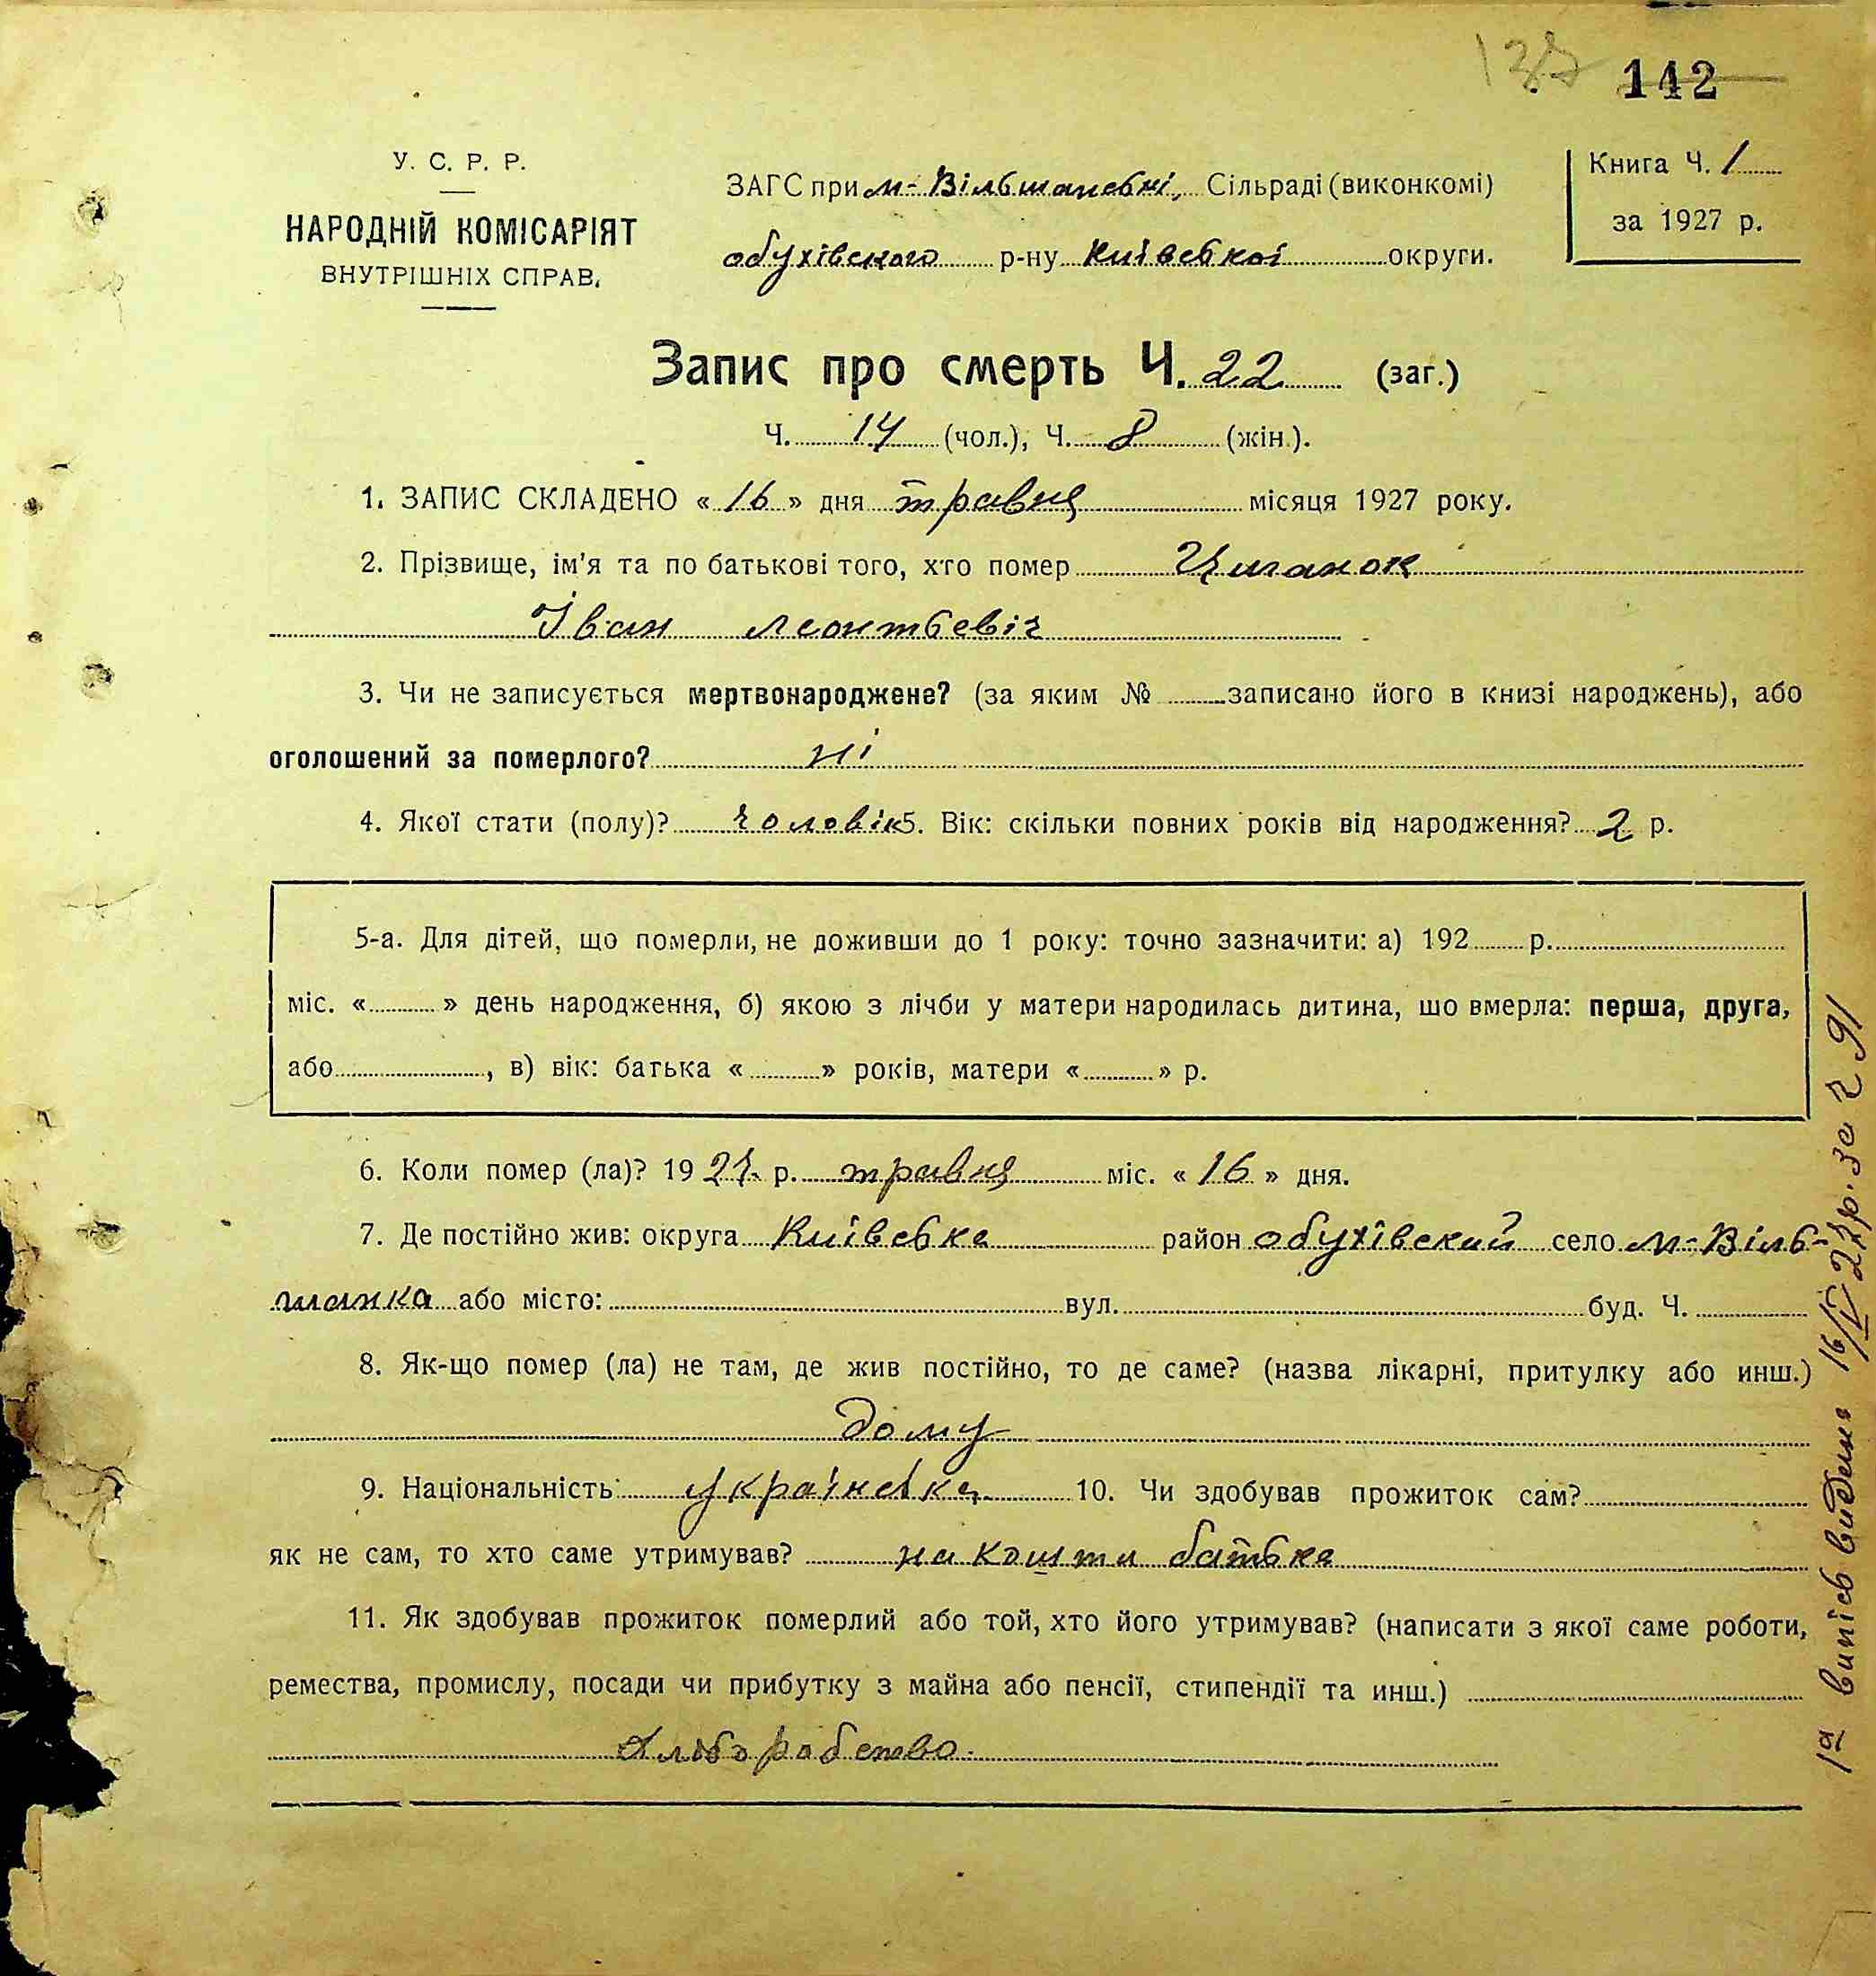 142
У. С. Р. Р.
НАРОДНІЙ КОМІСАРІЯТ
ВНУТРІШНІХ СПРАВ.
ЗАГС при м-Вільшанській, Сільраді (виконкомі)
обухівского р-ну Київської округи.
Книга Ч. 1
за 1927 р.
Запис про смерть Ч. 22 (заг.)
Ч. 14 (чол.), Ч. 8 (жін.).
1. ЗАПИС СКЛАДЕНО « 16 » дня травня місяця 1927 року.
2. Прізвище, ім'я та по батькові того, хто помер Циганок
Іван леонтьевіч
3. Чи не записується мертвонароджене? (за яким № записано його в книзі народжень), або
оголошений за померлого? ні
4. Якої стати (полу)? чоловік 5. Вік: скільки повних років від народження? 2 р.
5-а. Для дітей, що померли, не доживши до 1 року: точно зазначити: а) 192 р.
міс. « » день народження, б) якою з лічби у матери народилась дитина, шо вмерла: перша, друга,
або , в) вік: батька « » років, матери « » р.
6. Коли помер (ла)? 1927 р. травня міс. « 16 » дня.
7. Де постійно жив: округа Київська район обухівский село м-Віль-
шанка або місто: вул. буд. Ч.
8. Як-що помер (ла) не там, де жив постійно, то де саме? (назва лікарні, притулку або инш.)
дому
9. Національність українська 10. Чи здобував прожиток сам?
як не сам, то хто саме утримував? на кошти батька
11. Як здобував прожиток померлий або той, хто його утримував? (написати з якої саме роботи,
ремества, промислу, посади чи прибутку з майна або пенсії, стипендії та инш.)
Хлиборобство.
випісь видана 16/V 27р. за № 91